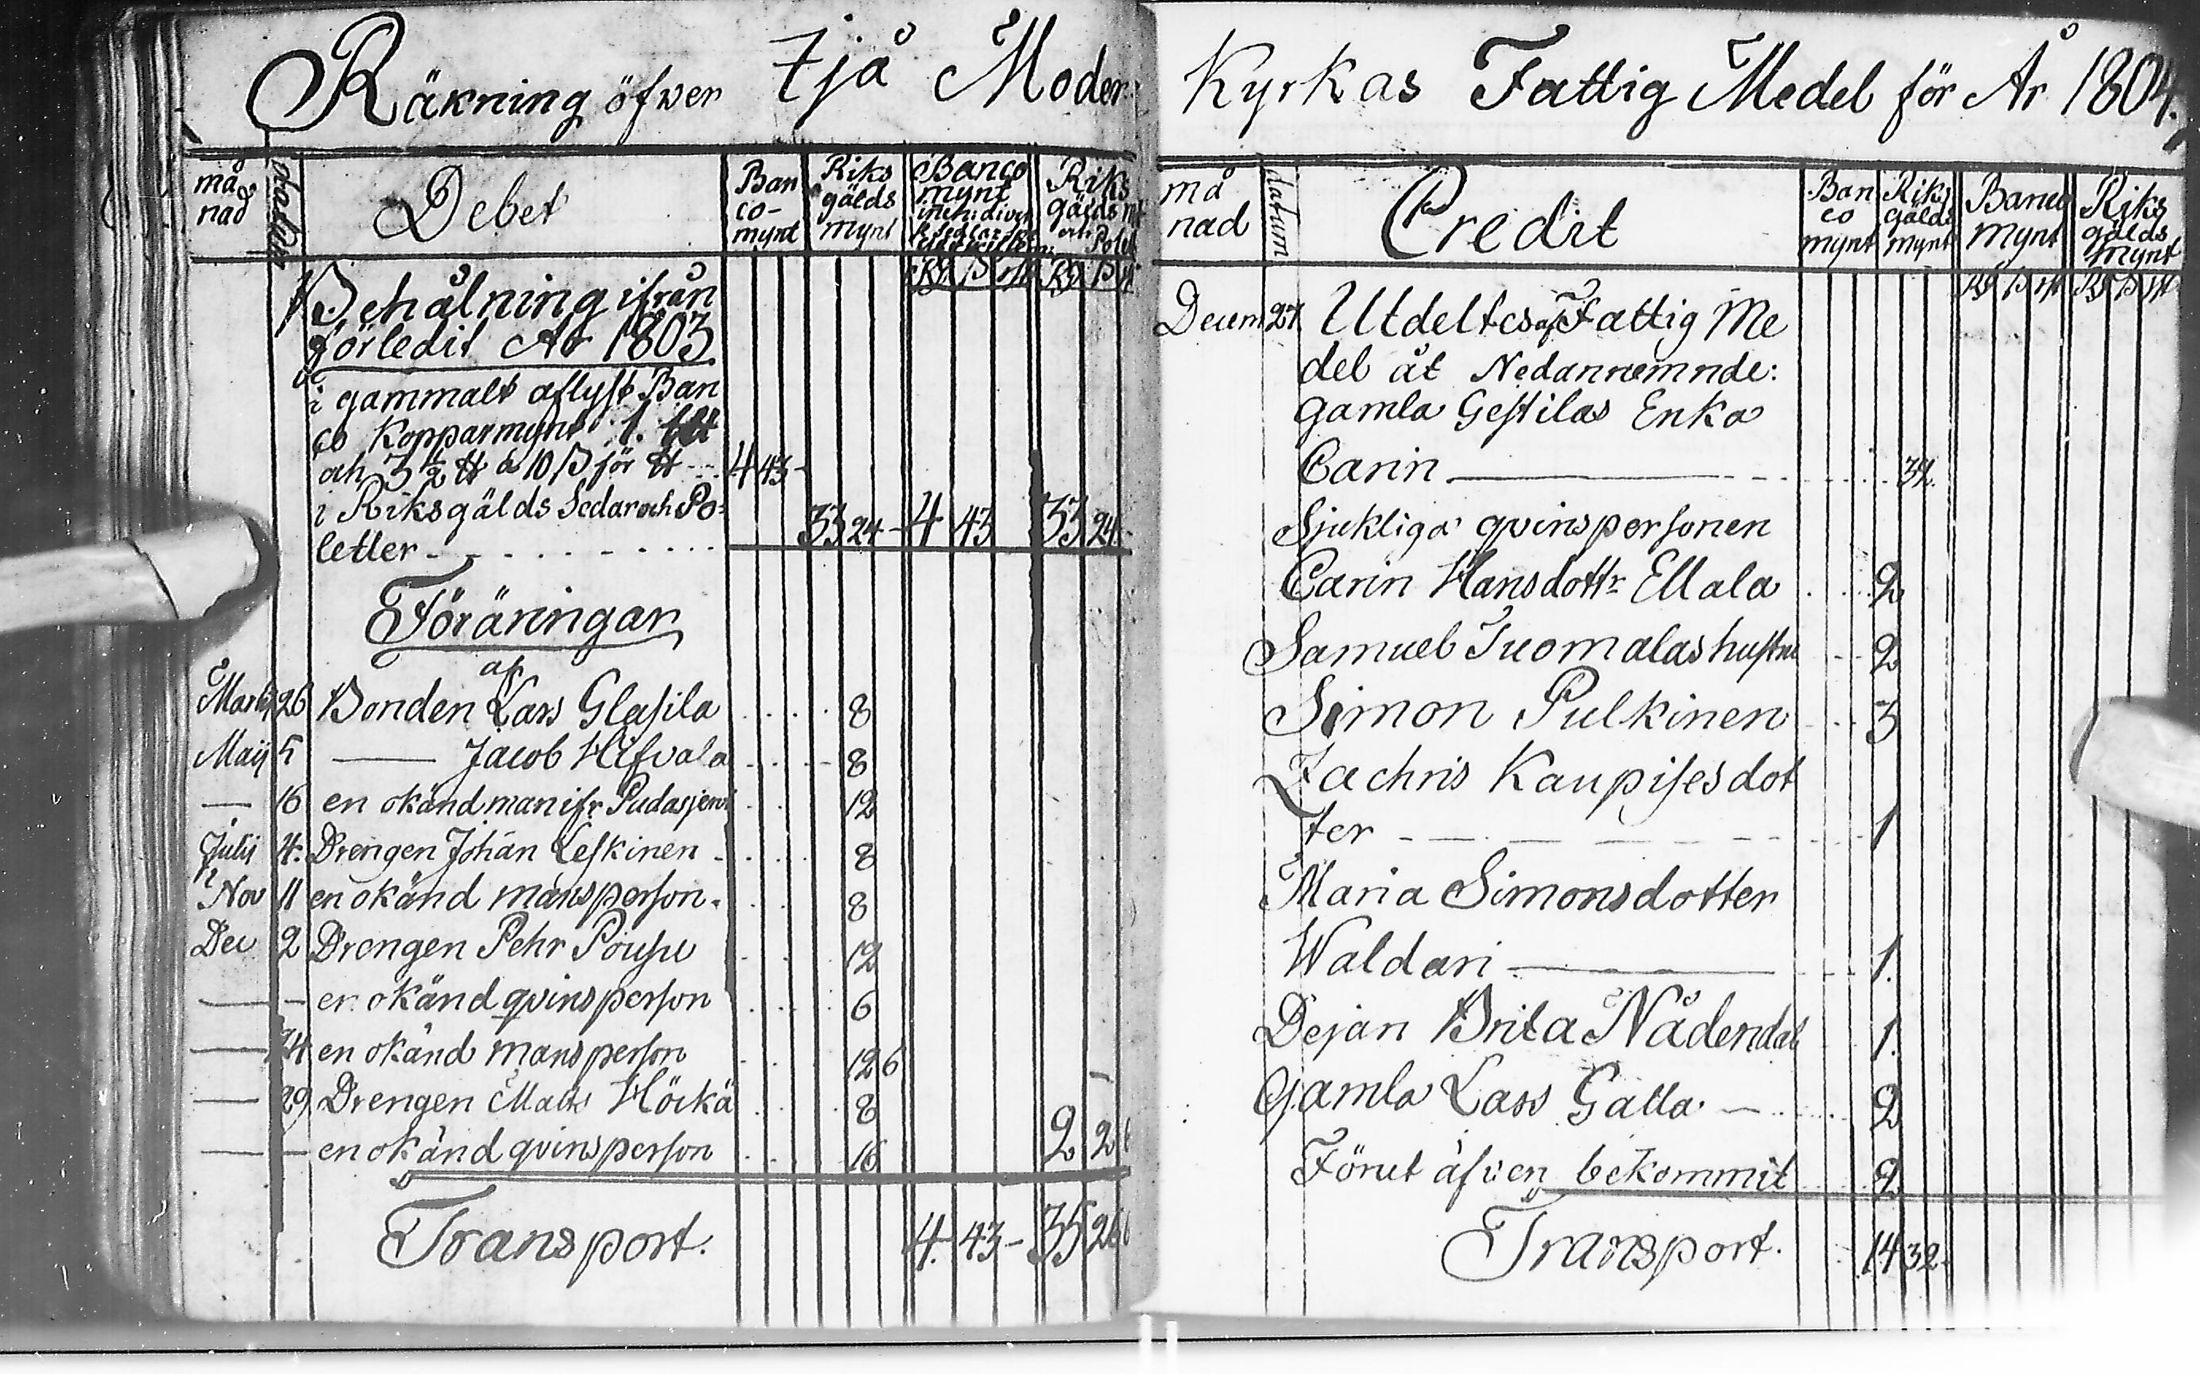 Räkning öfwer Ijå Moder
må nad datum Debet Ban co- mynt Riks gälds mynt Banco mynt Riks gälds
Behålning ifrån
förledit År 1803
i gammalt aflyst Ban
co Kopparmynt 1.
och 3 1/2 ℔ à 10 ß för ℔ -- 4 43 -
i Riksgälds Sedar och Po-
letter - - - - - 33 24 - 4 43 33 24 -
Föräringar
af
Martij 26 Bonden Lars Glasila 8
Maij 5 —— Jacob Hifvala 8
— 16 en okänd man ifr Pudasjerwi 12
Julij 4. Drengen Johan Leskinen 8
Nov 11 en okänd mansperson. 8
Dec 2 Drengen Pehr Pousu 12
— - en okänd qvinsperson 6
— 14 en okänd mansperson 12 6
— 29 Drengen Matts Höckä 8
— - en okänd qvinsperson 16 2 2 6
Transport. 4. 43 - 35 26 6
Kyrkas Fattig Medel för År 1804.
må nad datum Credit Ban co mynt Riks gälds mynt Banco mynt Riks gälds mynt
Decem 27 Utdeltes af Fattig Me
del åt Nedannemnde:
gamla Gestilas Enka
Carin —— 32.
Sjukliga qvinspersonen
Carin Hansdottr Ellala 2
Samuel Tuomalas hustru 2
Simon Pulkinen 3
Zachris Kaupises dot
ter - - - - 1
Maria Simonsdotter
Waldari —— 1.
Dejan Brita Nådendal 1.
gamla Lars Galla - 2
Förut äfven bekommit 2
Transport. 14 32 -